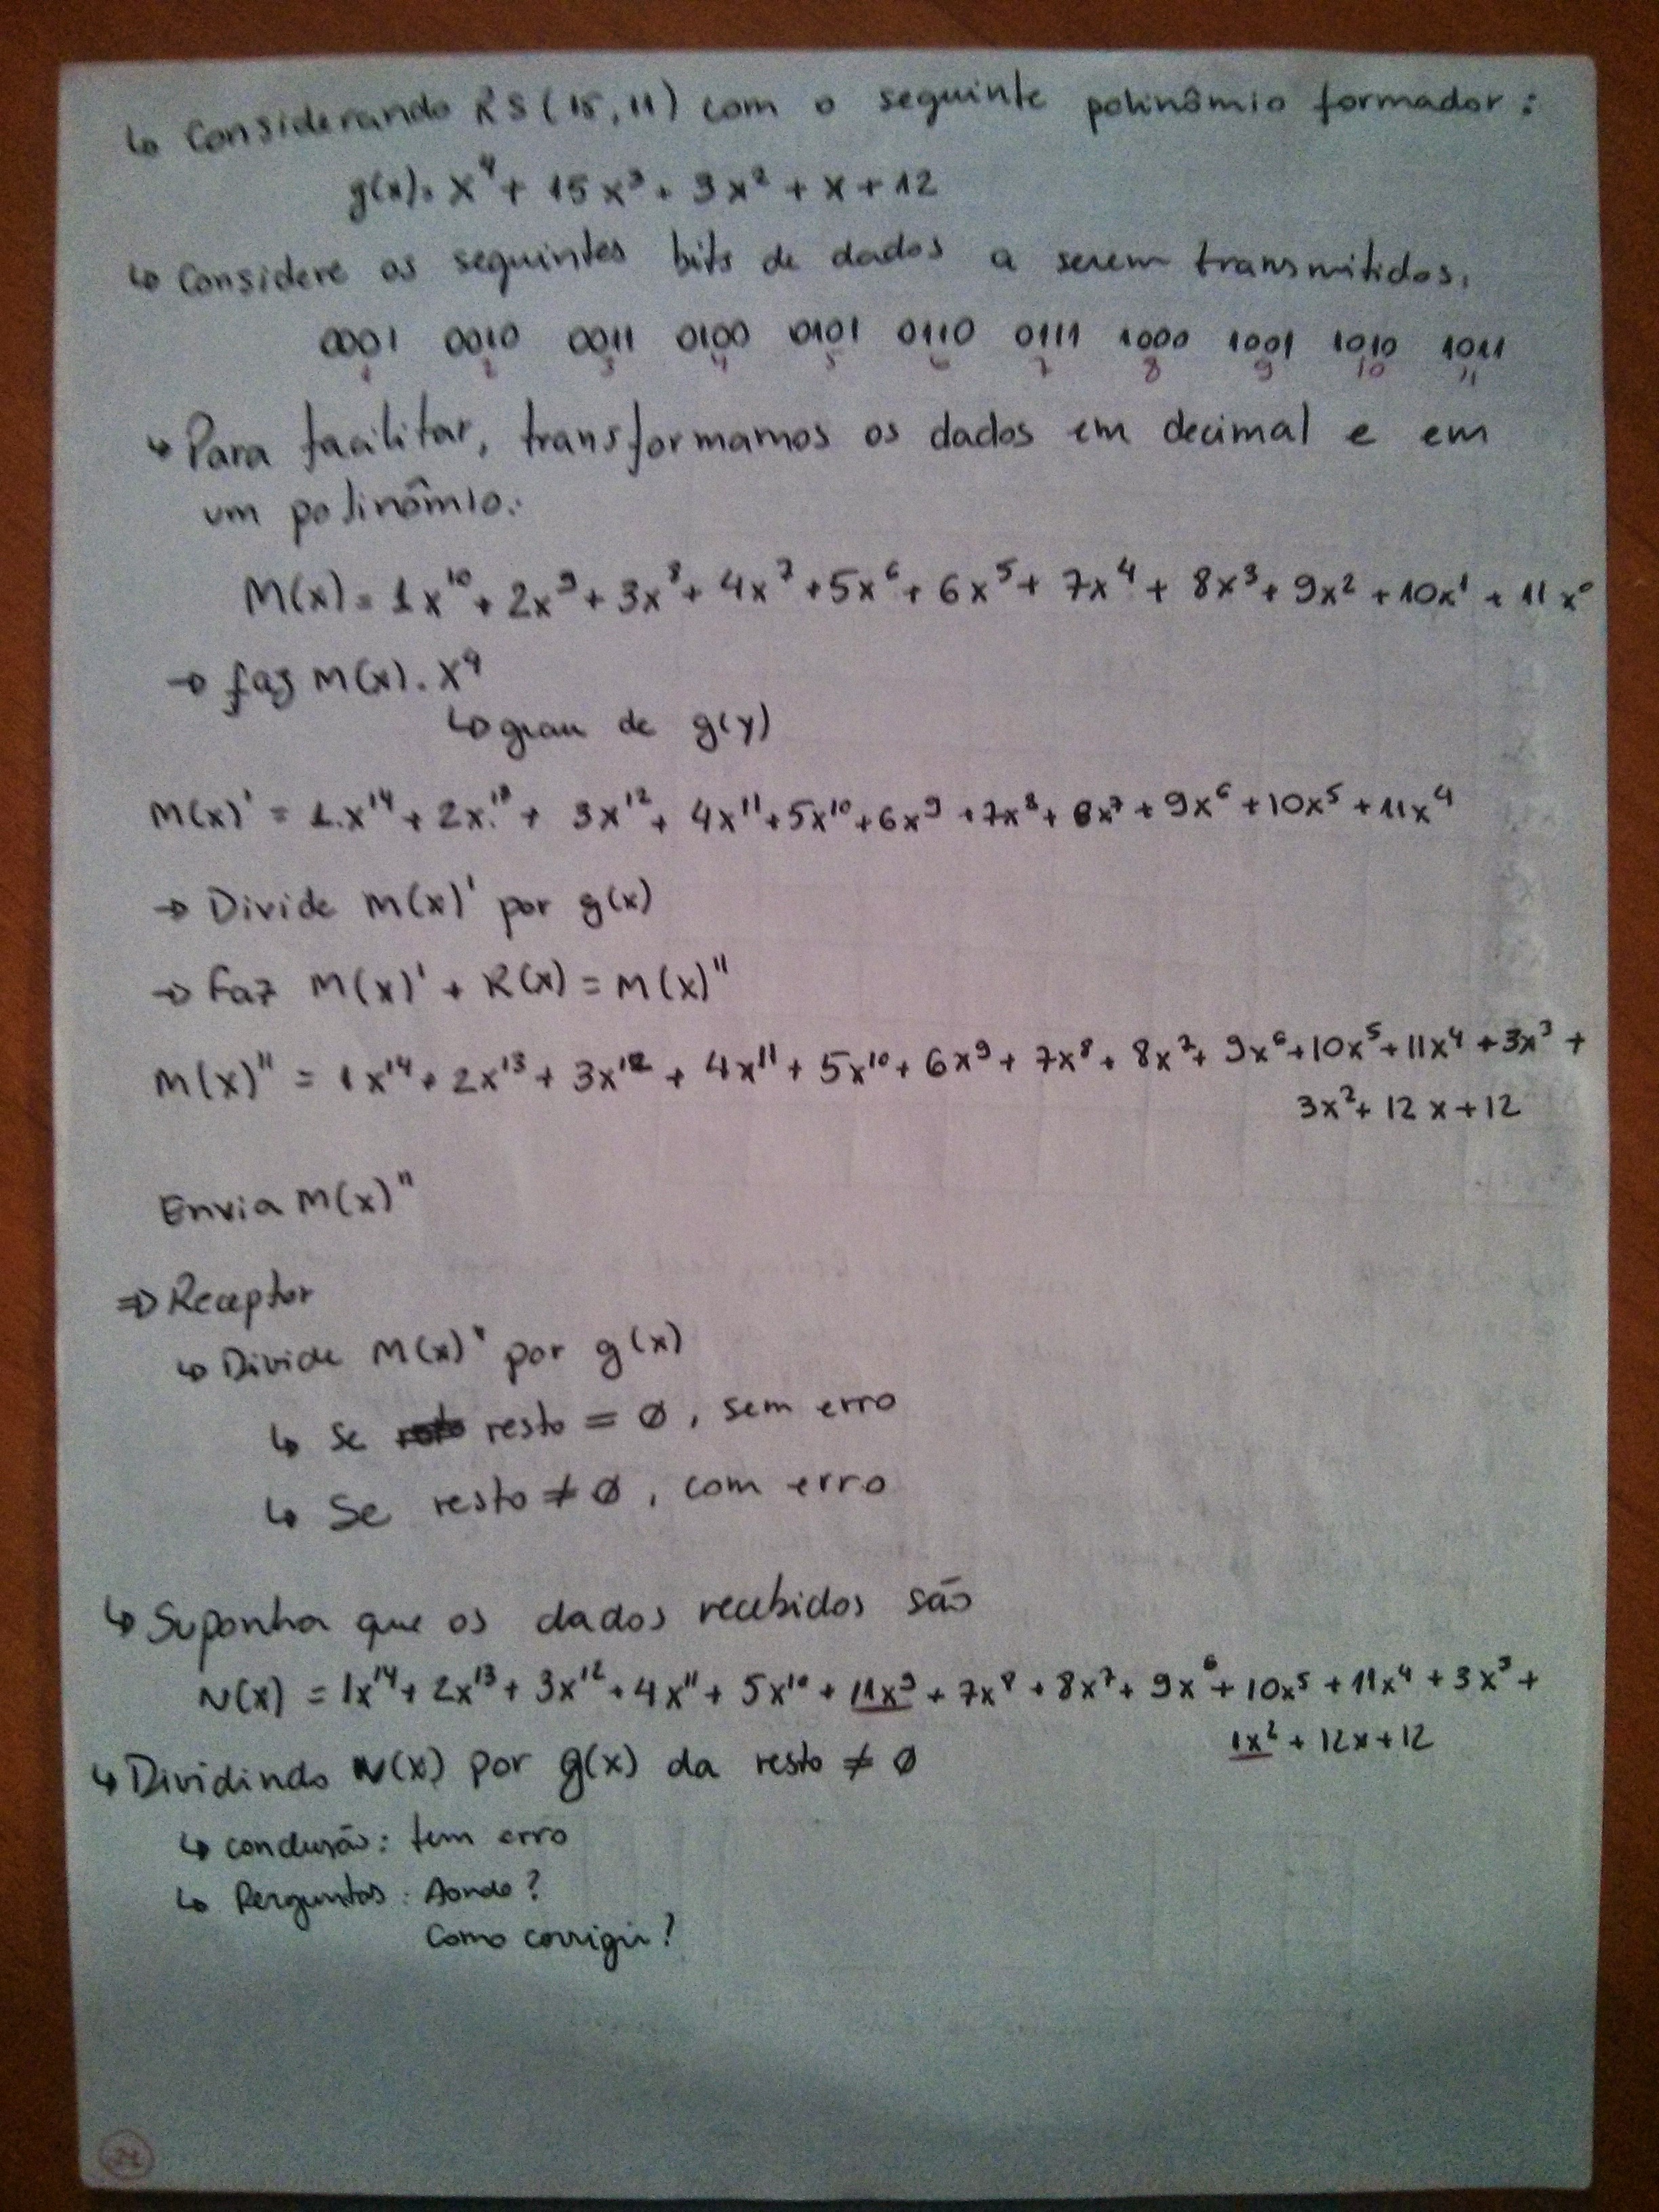 ↳ Considerando RS(15,11) com o seguinte polinômio formador:
g(x) = x⁴ + 15x³ + 3x² + x + 12
↳ Considere os seguintes bits de dados a serem transmitidos.
0001 0010 0011 0100 0101 0110 0111 1000 1001 1010 1011
1 2 3 4 5 6 7 8 9 10 11
↳ Para facilitar, transformamos os dados em decimal e em
um polinômio:
M(x) = 1x¹⁰ + 2x⁹ + 3x⁸ + 4x⁷ + 5x⁶ + 6x⁵ + 7x⁴ + 8x³ + 9x² + 10x¹ + 11x⁰
→ faz M(x) . x⁴
↳ grau de g(y)
M(x)' = 1.x¹⁴ + 2x.¹³ + 3x¹² + 4x¹¹ + 5x¹⁰ + 6x⁹ + 7x⁸ + 8x⁷ + 9x⁶ + 10x⁵ + 11x⁴
→ Divide M(x)' por g(x)
→ Faz M(x)' + R(x) = M(x)''
M(x)'' = 1x¹⁴ + 2x¹³ + 3x¹² + 4x¹¹ + 5x¹⁰ + 6x⁹ + 7x⁸ + 8x⁷ + 9x⁶ + 10x⁵ + 11x⁴ + 3x³ +
3x² + 12x + 12
Envia M(x)''
⇒ Receptor
↳ Divide M(x)'' por g(x)
↳ Se resto = ø, sem erro
↳ Se resto ≠ ø, com erro
↳ Suponha que os dados recebidos são
N(x) = 1x¹⁴ + 2x¹³ + 3x¹² + 4x¹¹ + 5x¹⁰ + 11x⁹ + 7x⁸ + 8x⁷ + 9x⁶ + 10x⁵ + 11x⁴ + 3x³ +
1x² + 12x + 12
↳ Dividindo N(x) por g(x) da resto ≠ ø
↳ conclusão: tem erro
↳ Perguntas: Aonde?
Como corrigir?